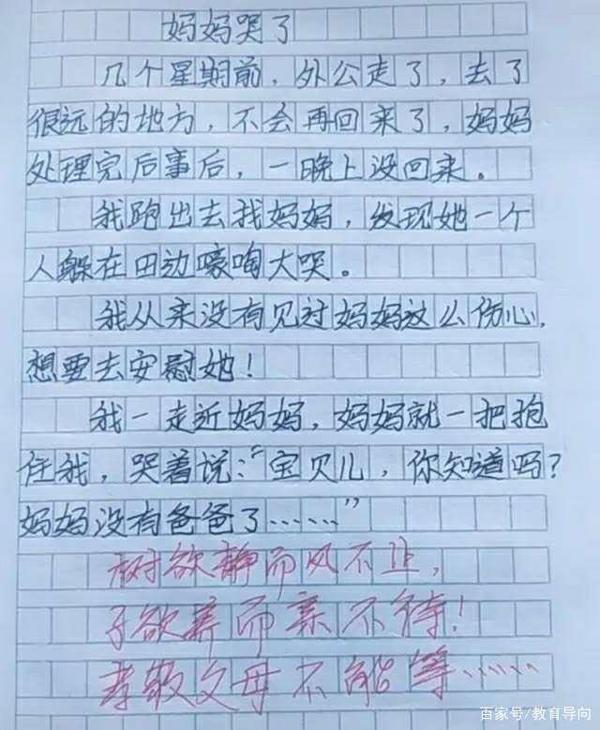 妈妈哭了
几个星期前，外公走了，去了
很远的地方，不会再回来了，妈妈
处理完后事后，一晚上没回来。
我跑出去找妈妈，发现她一个
人躲在田边嚎啕大哭。
我从来没有见过妈妈这么伤心，
想要去安慰她！
我一走近妈妈，妈妈就一把抱
住我，哭着说：“宝贝儿，你知道吗？
妈妈没有爸爸了……”
树欲静而风不止，
子欲养而亲不待！
孝敬父母不能等……
百家号/教育导向